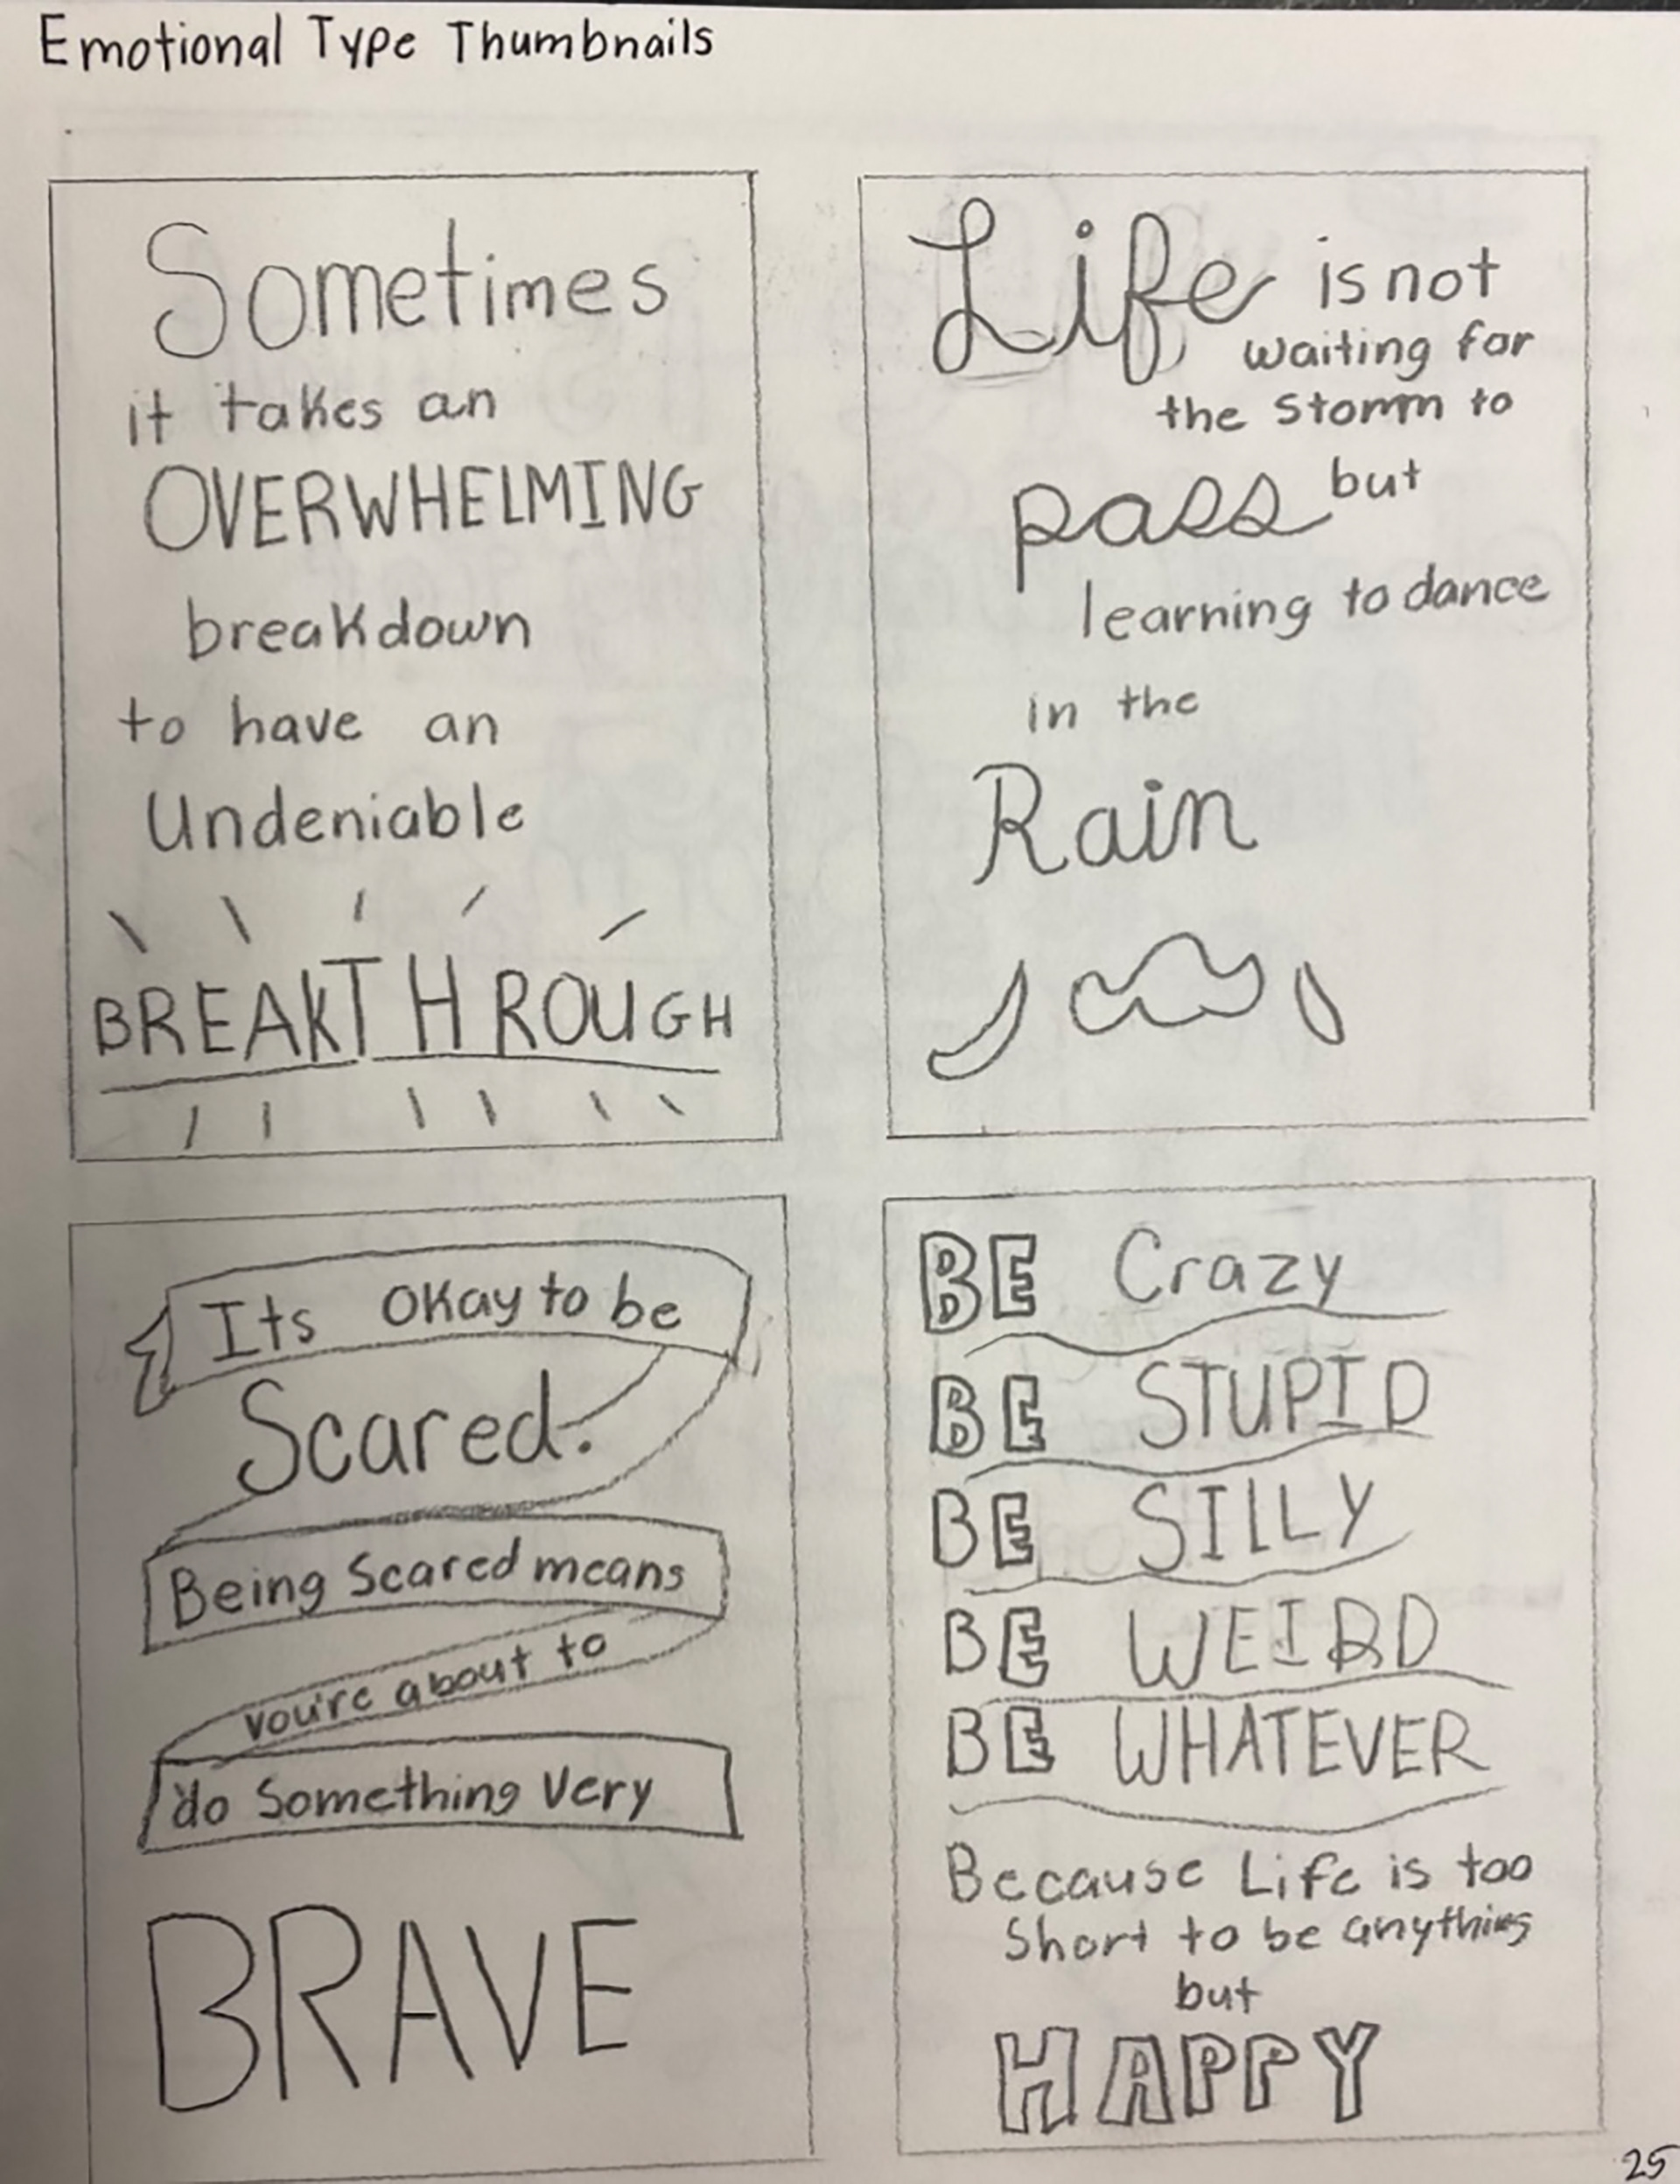 Emotional Type Thumbnails
Sometimes
it takes an
OVERWHELMING
breakdown
to have an
Undeniable
BREAKTHROUGH
Life is not
waiting for
the Storm to
pass but
learning to dance
in the
Rain
Its Okay to be
Scared.
Being Scared means
you're about to
do Something Very
BRAVE
BE Crazy
BE STUPID
BE SILLY
BE WEIRD
BE WHATEVER
Because Life is too
Short to be anything
but
HAPPY
25